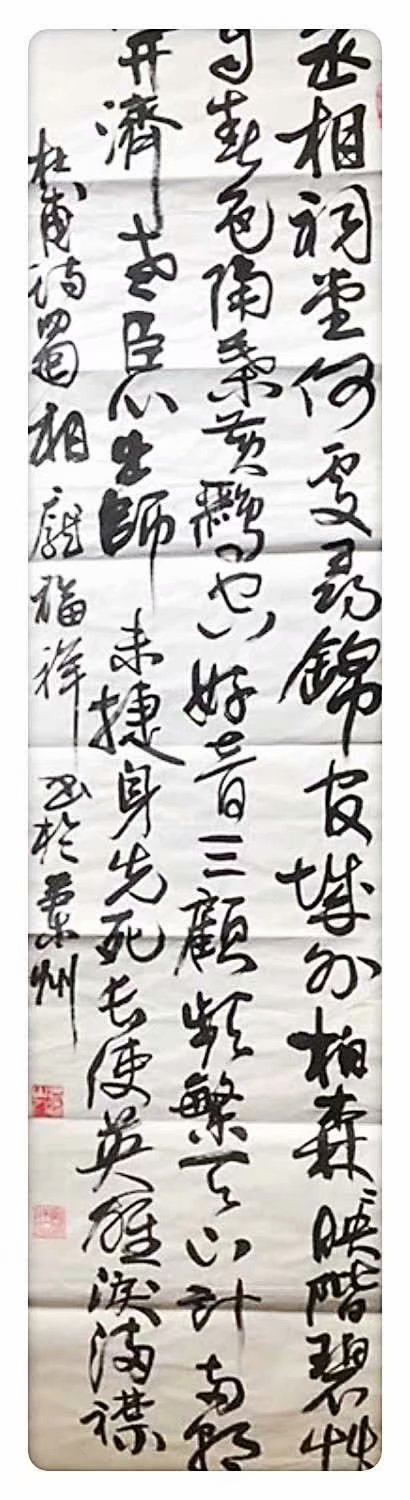 丞相祠堂何處尋錦官城外柏森〻映階碧艸
自春色隔葉黄鸝空好音三顧頻繁天下計兩朝
开濟老臣心出師未捷身先死長使英雄淚滿襟
杜甫詩蜀相龐福祥书於蘭州